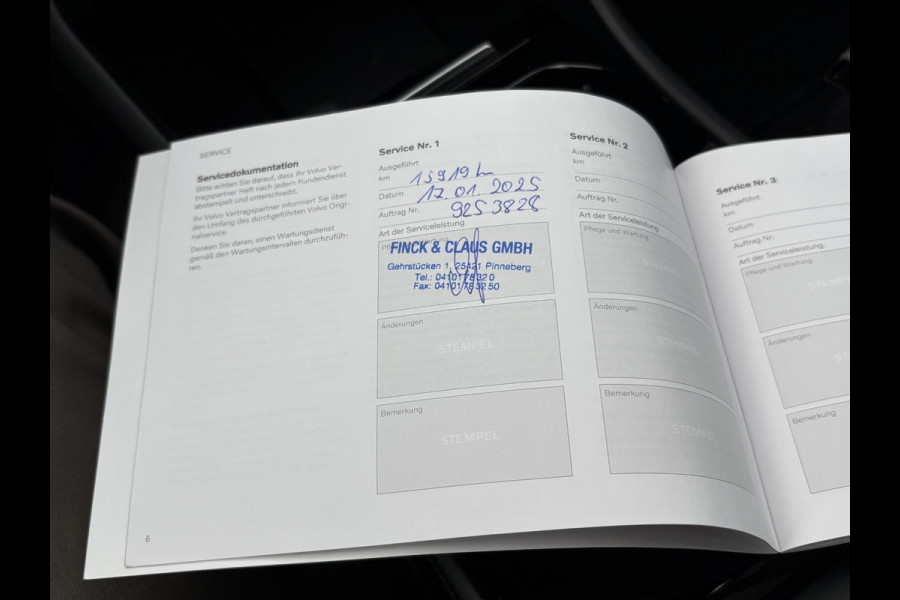 SERVICE
Servicedokumentation
Bitte achten Sie darauf, dass Ihr Volvo Ver-
tragspartner Heft nach jedem Kundendienst
abstempelt und unterschreibt.
Ihr Volvo Vertragspartner informiert Sie über
den Umfang des durchgeführten Volvo Origi-
nalservice.
Denken Sie daran, einen Wartungsdienst
gemäß den Wartungsintervallen durchzufüh-
ren.
6
Service Nr. 1
Ausgeführt
km 15919
Datum 17.01.2025
Auftrag Nr. 9253828
Art der Serviceleistung
FINCK & CLAUS GMBH
Gehrstücken 1, 25421 Pinneberg
Tel.: 04101 78320
Fax: 04101 783250
Änderungen
STEMPEL
Bemerkung
STEMPEL
Service Nr. 2
Ausgeführt
km
Datum
Auftrag Nr.
Art der Serviceleistung
Pflege und Wartung
Änderungen
Bemerkung
STEMPEL
Service Nr. 3
Ausgeführt
km
Datum
Auftrag Nr.
Art der Serviceleistung
Pflege und Wartung
Änderungen
Bemerkung